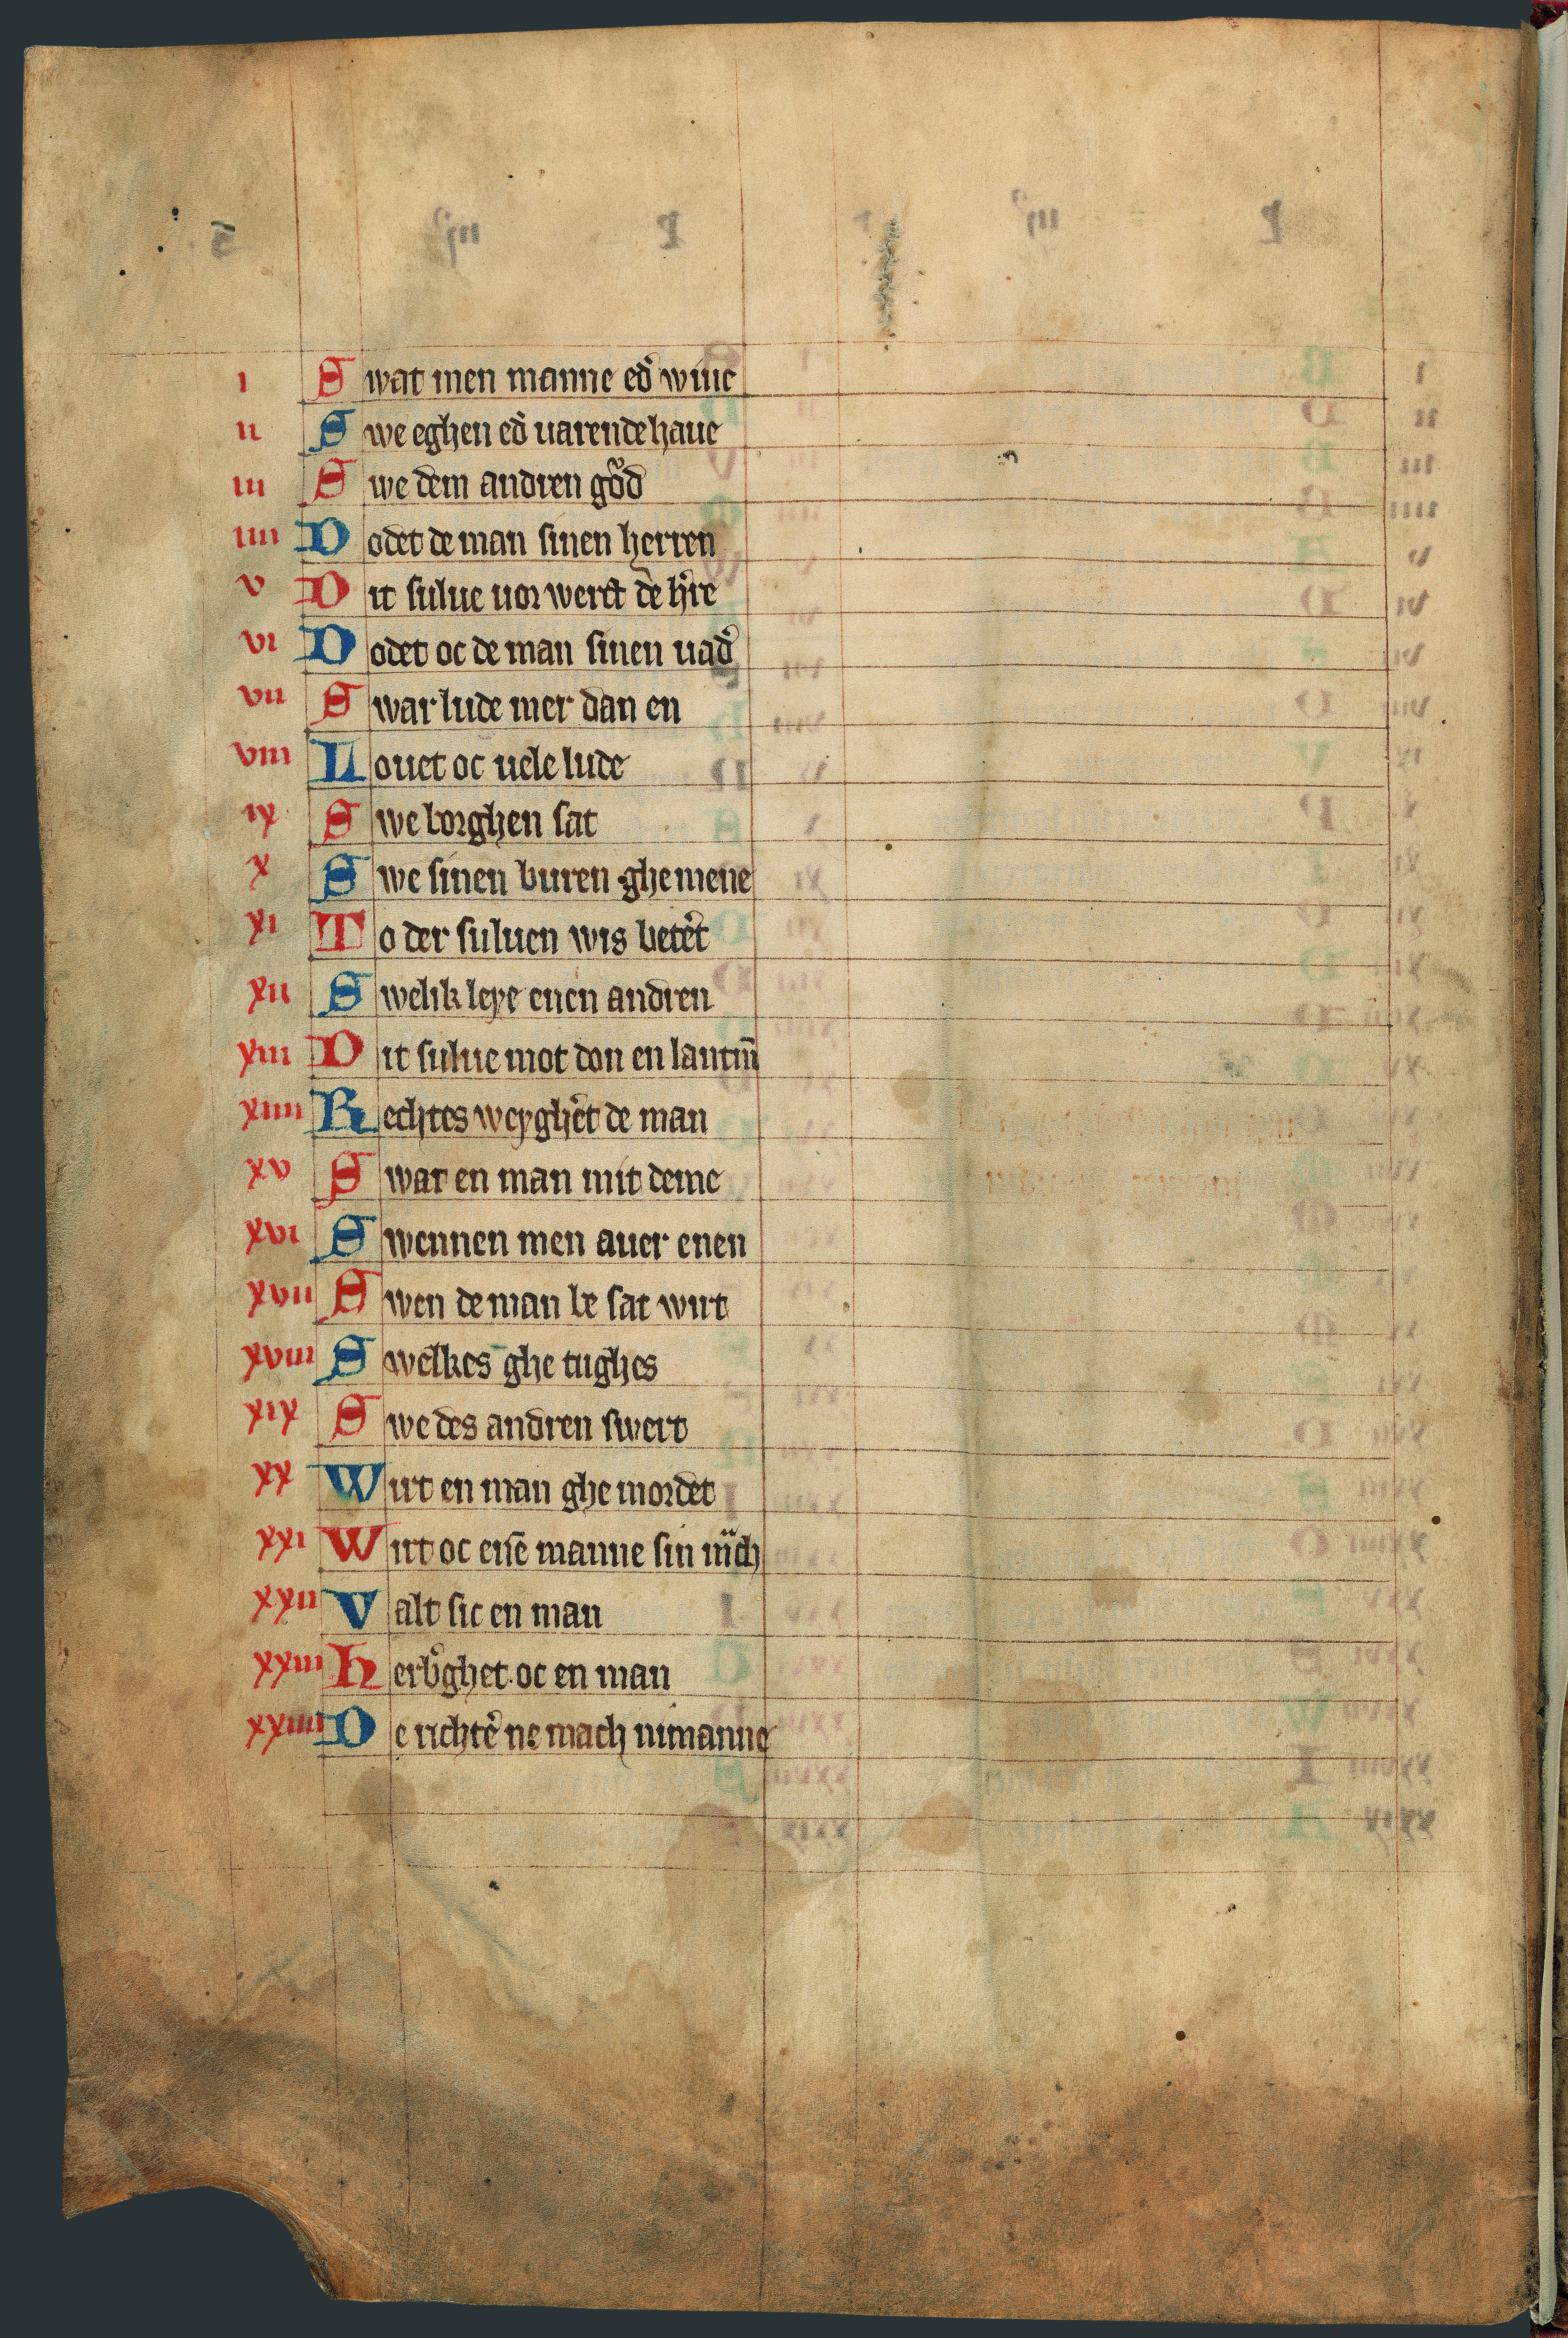 ı Swat men manne ed͛ wiue
ıı Swe eghen ed͛ uarende haue
ııı Swe dem andren gůd
ıııı Dodet de man sinen herren
v Dit sulue uorwerct de h͛re
vı Dodet oc de man sinen uad͛
vıı Swar lude mer dan en
vııı Louet oc uele lude
ıx Swe borghen sat
x Swe sinen buren ghemene
xı To der suluen wis betet͛
xıı Swelik leye enen andren
xııı Dit sulue mot don en lantm̄
xıııı Rechtes weygh͛et de man
xv Swar en man mit deme
xvı Swennen men auer enen
xvıı Swen de man be sat wirt
xvııı Swelkes ghe tughes
xıx Swe des andren swert
xx Wirt en man ghe mordet
xxı Wirt oc
manne sin
xxıı Valt sic en man
xxııı Herb͛ghet oc en man
xxıııı De richt͛e ne mach nimanne